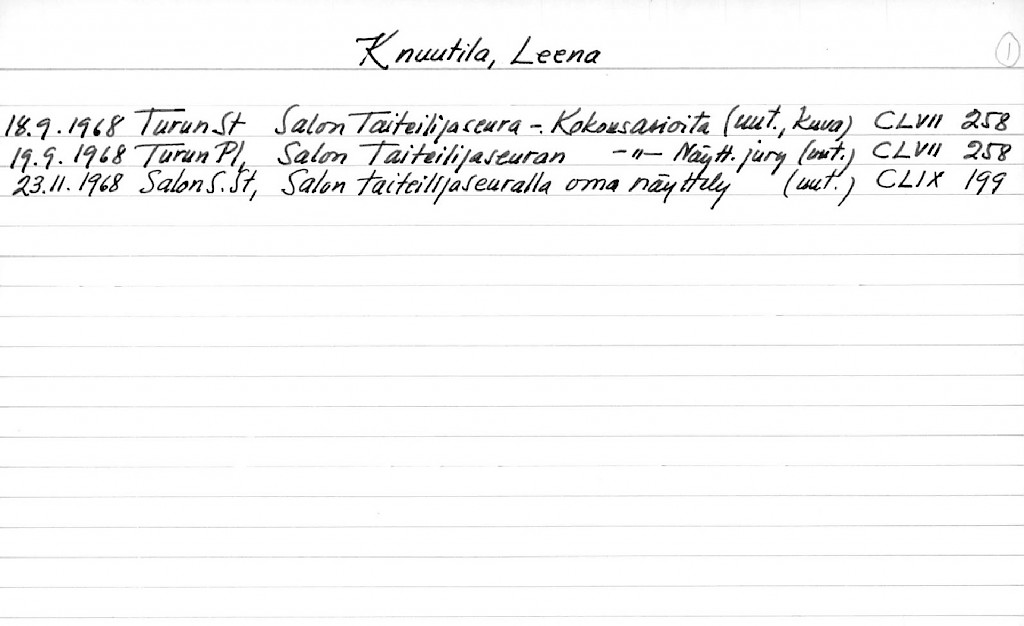 Knuutila, Leena 1
18.9.1968 Turun St Salon Taiteilijaseura - Kokousasioita (uut., kuva) CLVII 258
19.9.1968 Turun Pl, Salon Taiteilijaseuran -"- Näytt. jury (uut.) CLVII 258
23.11.1968 Salon S. St, Salon taiteilijaseuralla oma näyttely (uut.) CLIX 199